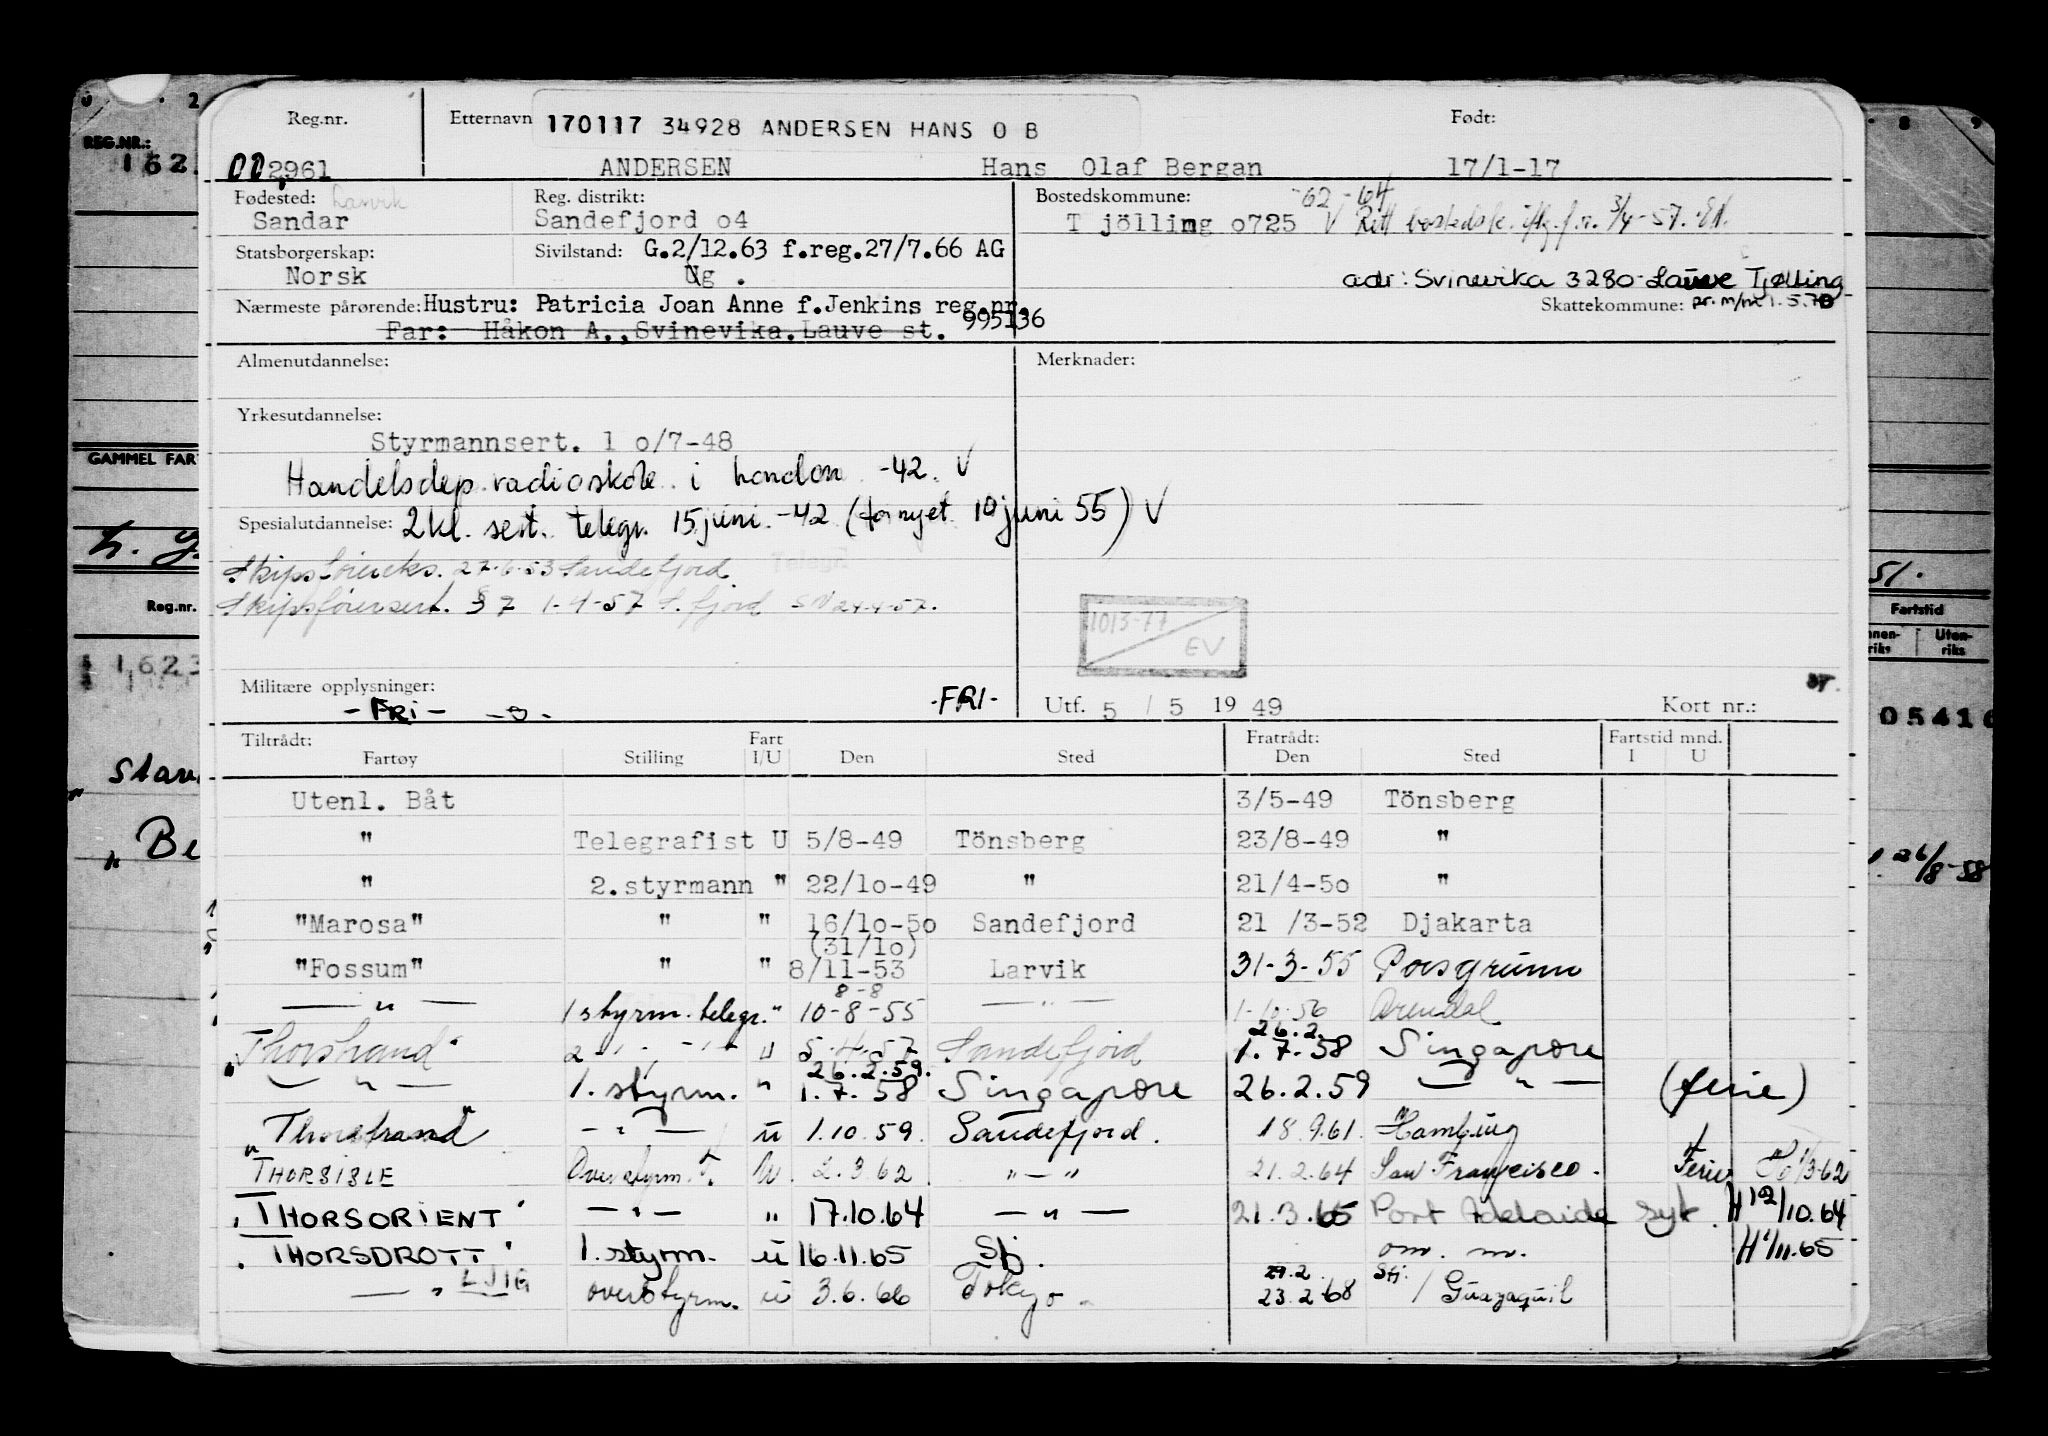 Reg.nr. Etternavn 170117 34928 ANDERSEN HANS O B Født:
002961 ANDERSEN Hans Olaf Bergan 17/1-17
Fødested: Larvik Reg. distrikt: Bostedskommune: -62-64
Sandar Sandefjord o4 T jölling o725 V Rett bostedsk. 3/4-57.
Statsborgerskap: Sivilstand: G.2/12.63 f.reg.27/7.66 AG
Norsk Ug . adr: Svinevika 3280 Lauve Tjølling
Nærmeste pårørende: Hustru: Patricia Joan Anne f.Jenkins reg.nr. 995136 Skattekommune: pr. m/nr 1.5.70
Far: Håkon A., Svinevika.Lauve st.
Almenutdannelse: Merknader:
Yrkesutdannelse:
Styrmannsert. 1 o/7-48
Handelsdep. radioskole i London -42. V
Spesialutdannelse: 2 kl. sert. telegr. 15 juni -42 (fornyet 10 juni 55) V
Skipsførereks. 27-6-53 Sandefjord Telegr
Skipsførersert. § 7 1-4-57 S.fjord 24-4-57.
1013-77
EV
Militære opplysninger: -FRI-
-FRI- Utf. 5 / 5 19 49 Kort nr.:
Tiltrådt: Fart Fratrådt: Fartstid mnd.
Fartøy Stilling I/U Den Sted Den Sted I U
Utenl. Båt 3/5-49 Tönsberg
" Telegrafist U 5/8-49 Tönsberg 23/8-49 "
" 2.styrmann " 22/1o-49 " 21/4-5o "
"Marosa" " " 16/1o-5o Sandefjord 21 /3-52 Djakarta
(31/1o)
"Fossum" " " 8/11-53 Larvik 31-3-55 Porsgrunn
8-8
— " — 1 styrm. telegr. " 10-8-55 — " — 1-10-56 Arendal
26.2.
"Thorstrand" 2 -"- -"- " 5.4.57 Sandefjord 1.7.58 Singapore
26.2.59.
— " — 1. styrm. " 1.7.58 Singapore 26.2.59 — " — (ferie)
"Thorstrand" — " — u 1.10.59. Sandefjord. 18.9.61. Hamburg
"THORSISLE Overstyrm. T. U. 2.3.62 " — " 21.2.64 San Francisco. Ferie 1/3-62
"THORSORIENT" — " — " 17.10.64 — " — 21.3.65 Port Adelaide syk. H 12/10.64
"THORSDROTT" 1. styrm. u 16.11.65 Sfj. om. m. H 1/11.65
— " — LJIG overstyrm. u 3.6.66 Tokyo 29.2. Sfj.
23.2.68 / Guayaquil
REG.NR.:
162
GAMMEL FAR
Reg.nr.
1623
Stav
"Be
8 9
51.
Fartstid
Uten-
riks
05416
26/8-58